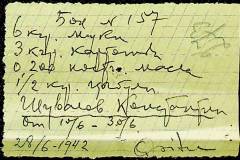 Бон N 157
6 кг. муки
3 кгр. картошки
0,200 постр. масла
1/2 кг.
Шувалов Константин
от 10/6 – 30/6
28/6 – 1942